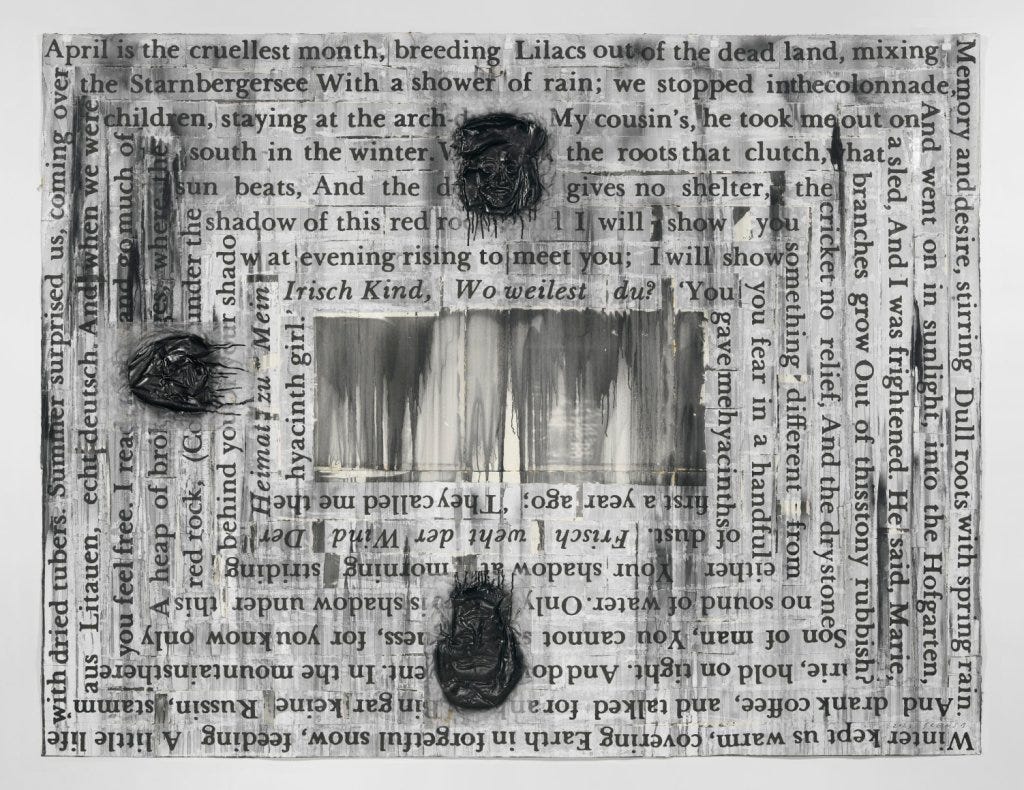 April is the cruellest month, breeding Lilacs out of the dead land, mixing
Memory and desire, stirring Dull roots with spring rain.
Winter kept us warm, covering Earth in forgetful snow, feeding A little life
with dried tubers. Summer surprised us, coming over
the Starnbergersee With a shower of rain; we stopped inthecolonnade,
And went on in sunlight, into the Hofgarten,
And drank coffee, and talked for an Bin gar keine Russin, stamm
aus Litauen, echt deutsch. And when we were
children, staying at the arch- My cousin's, he took me out on
a sled, And I was frightened. He said, Marie,
hold on tight. And do In the mountainsthere
you feel free. I and so much of
south in the winter. the roots that clutch, what
branches grow Out of thisstony rubbish?
Son of man, You cannot for you know only
A heap of where the
sun beats, And the gives no shelter, the
cricket no relief, And the dry stone
no sound of water. Only is shadow under this
red rock, (Co under the
shadow of this red I will show you
something different from
either Your shadow at morning striding
behind shado
w at evening rising to meet you; I will show
you fear in a handful
of dust. Frisch weht der Wind Der
Heimat zu Mein
Irisch Kind, Wo weilest du? 'You
gave mehyacinths
first a year ago; 'They called me the
hyacinth girl.'